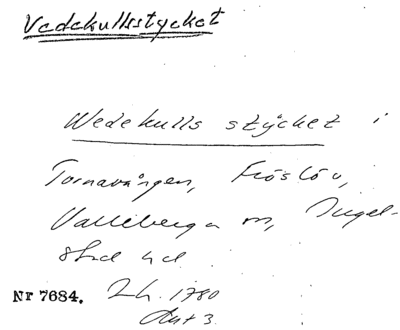 Vedekullsstycket
Wedekulls stÿcket i
Tornavången, Fröslöv,
Valleberga sn, Ingel-
stad hd
Nr 7684. Lh. 1780
Akt 3.